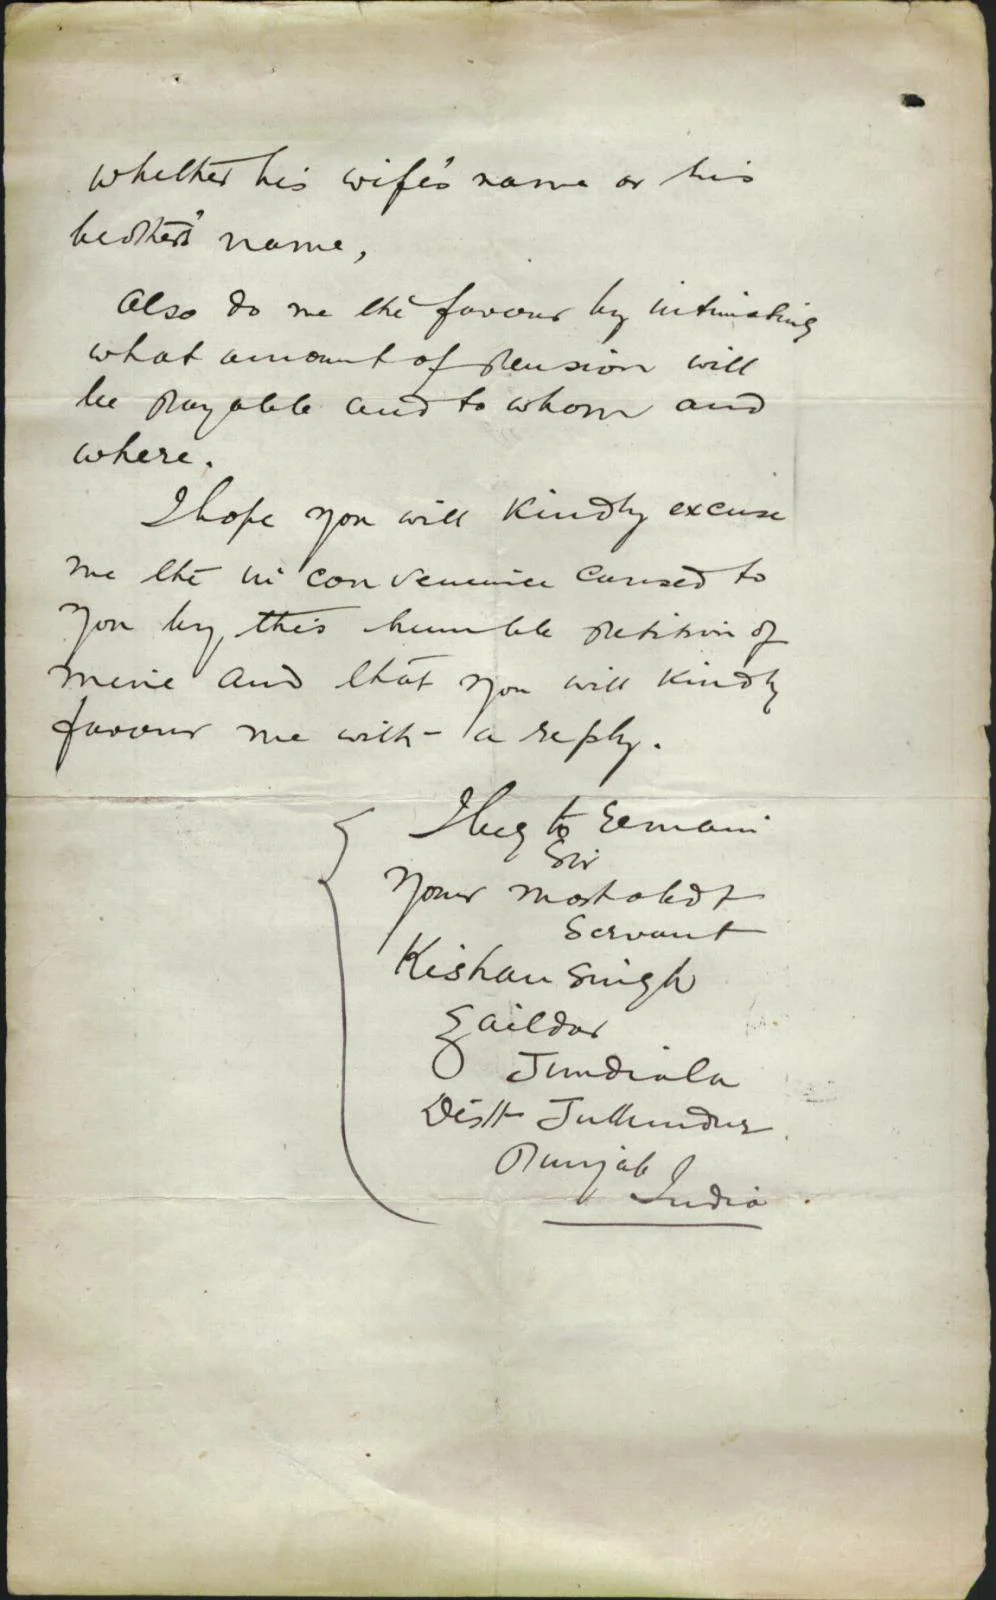 whether his wife's name or his
brother's name,
Also do me the favour by intimating
what amount of pension will
be payable and to whom and
where.
I hope you will kindly excuse
me the in convenience caused to
you by this humble petition of
mine and that you will kindly
favour me with a reply.
I beg to remain
Sir
Your most obdt
Servant
Kishan Singh
Zaildar
Jundiala
Distt Jullundur
Punjab
India